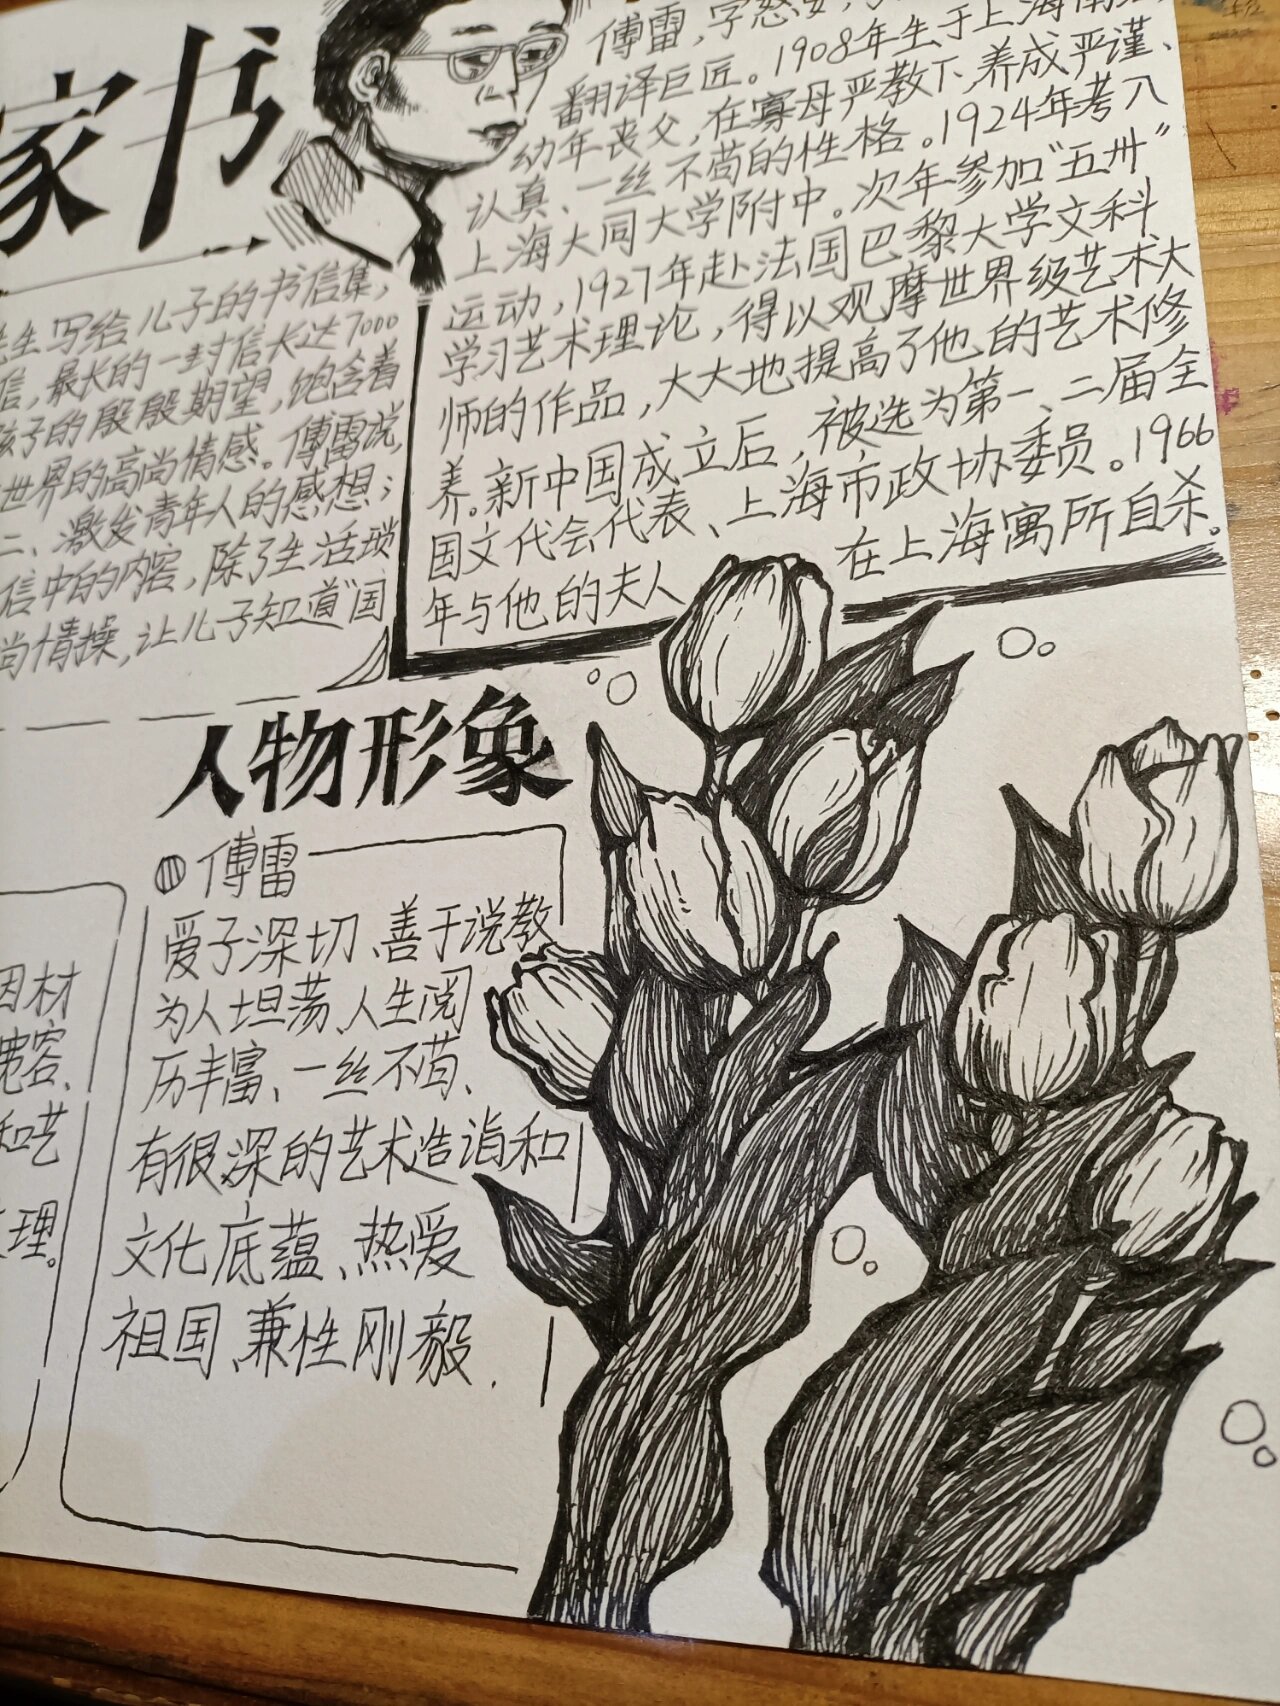 家书
傅雷,字怒安,
翻译巨匠。1908年生于上海南汇,
幼年丧父,在寡母严教下,养成严谨、
认真、一丝不苟的性格。1924年考入
上海大同大学附中。次年参加“五卅”
运动,1927年赴法国巴黎大学文科
学习艺术理论,得以观摩世界级艺术大
师的作品,大大地提高了他的艺术修
养。新中国成立后,被选为第一、二届全
国文代会代表、上海市政协委员。1966
年与他的夫人 在上海寓所自杀。
先生写给儿子的书信集,
信,最长的一封信长达7000
孩子的殷殷期望,饱含着
世界的高尚情感。傅雷说,
二、激发青年人的感想;
信中的内容,除了生活琐
尚情操,让儿子知道“国
人物形象
傅雷
爱子深切、善于说教
为人坦荡、人生阅
历丰富、一丝不苟、
有很深的艺术造诣和
文化底蕴、热爱
祖国、兼性刚毅.
因材
宽容、
和艺
理。